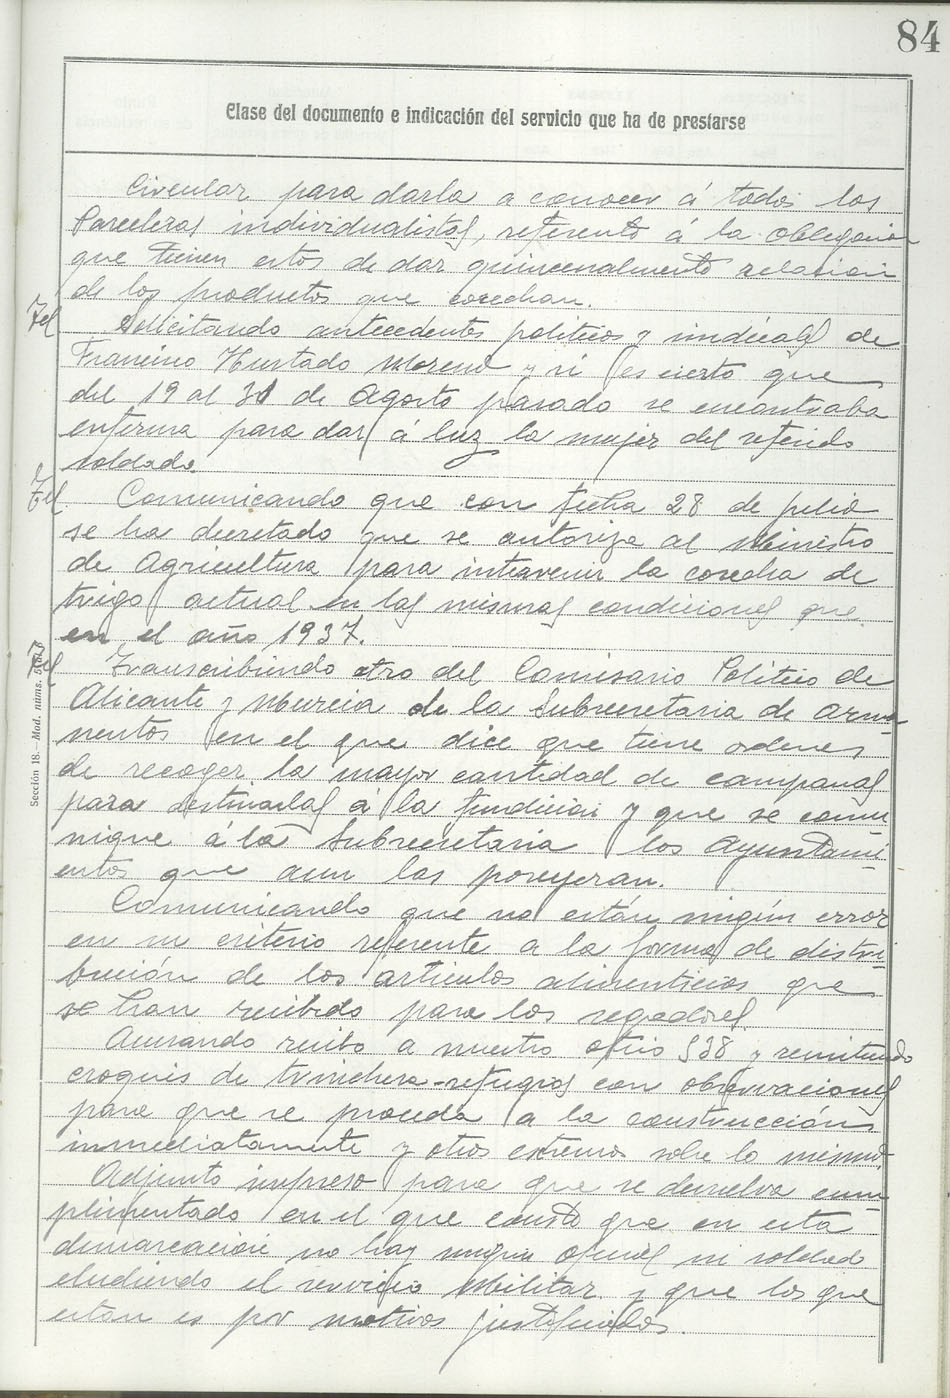 84
Clase del documento e indicación del servicio que ha de prestarse
Circular para darla a conocer á todos los
Parceleros individualistas, referente á la obligación
que tienen estos de dar quincenalmente relación
de los productos que cosechan.
Tel
Solicitando antecedentes politicos y sindicales de
Francisco Hurtado Moreno y si es cierto que
del 19 al 31 de Agosto pasado se encontraba
enferma para dar á luz la mujer del referido
soldado.
Tel
Comunicando que con fecha 28 de julio
se ha decretado que se autorize al Ministro
de Agricultura para intervenir la cosecha de
trigo actual en las mismas condiciones que
en el año 1937.
Tel
Transcribiendo otro del Comisario Politico de
Alicante y Murcia de la Subsecretaria de Arma-
mentos en el que dice que tiene ordenes
de recoger la mayor cantidad de campanas
para destinarlas á la fundición y que se comu-
nique á la Subsecretaria los Ayuntami-
entos que aun las poseyeran.
Comunicando que no están ningún error
en su criterio referente a la forma de distri-
bución de los articulos alimenticios que
se han recibido para los segadores.
Acusando recibo a nuestro oficio 538 y remitiendo
croquis de trinchera-refugios con observaciones
para que se proceda a la construcción
inmediatamente y otros extremos sobre lo mismo.
Adjunto impreso para que se devuelva cum-
plimentado en el que conste que en esta
demarcación no hay ningun oficial ni soldado
eludiendo el servicio Militar y que los que
estan es por motivos justificados.
Sección 18.—Mod. núms.